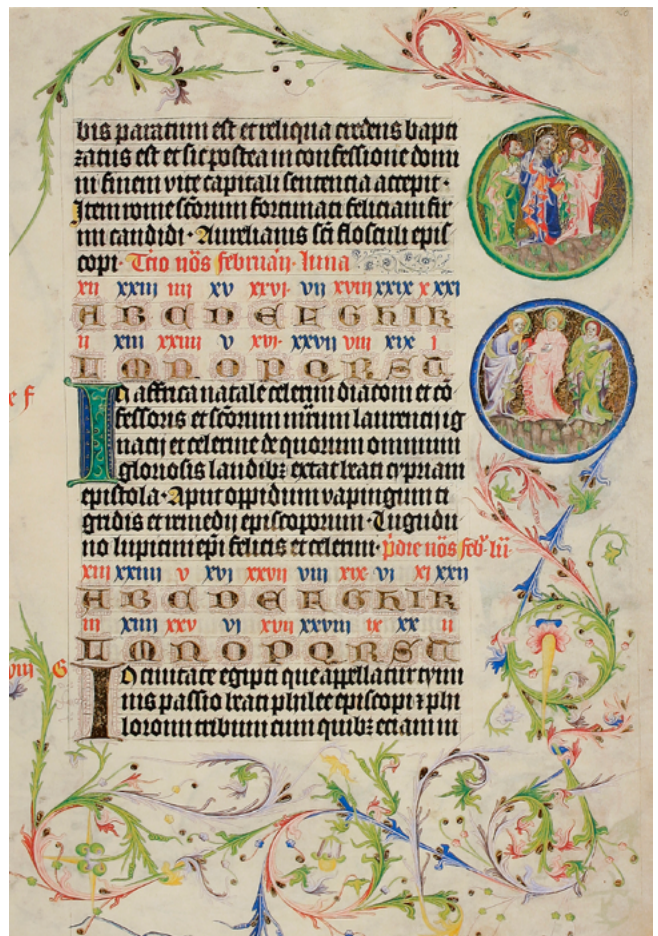 bis paratum est et reliqua credens bapti
zatus est et sic postea in confessione domi
ni finem vite capitali sentencia accepit·
Item rome scōrum fortunati feliciani fir
mi candidi· Aurelianis scī flosculi epis
copi· Tcio nōs februarij· luna
xii xxiii iiii xv xxvi· vii xviii xxix x xxi
A B C D E F G H I K
ii xiii xxiiii v xvi· xxvii viii xix i
L M N O P Q R S T
In affrica natale celerini diaconi et cō
fessoris et scōrum mrūm laurencij ig
nacij et celerine de quorum omnium
gloriosis laudibꝫ extat beati cypriani
epistola· Aput oppidum vapingum ti
gridis et remedij episcoporum· Lugudu
no lupicini epī felicis et celerini· pdie nōs feb' lū
e F
xiii xxiiii v xvi xxvii viii xix· vi xi xxii
A B C D E F G H I K
iii xiiii xxv vi xvii xxviii ix xx ii
L M N O P Q R S T
G
In civitate egipti que appellatur tymi
nis passio beati philee episcopi ⁊ phi
loromi tribuni cum quibꝫ eciam in